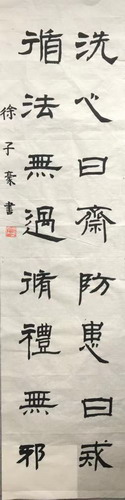 洗心曰齋防患曰戒
循法無過脩禮無邪
徐子豪書